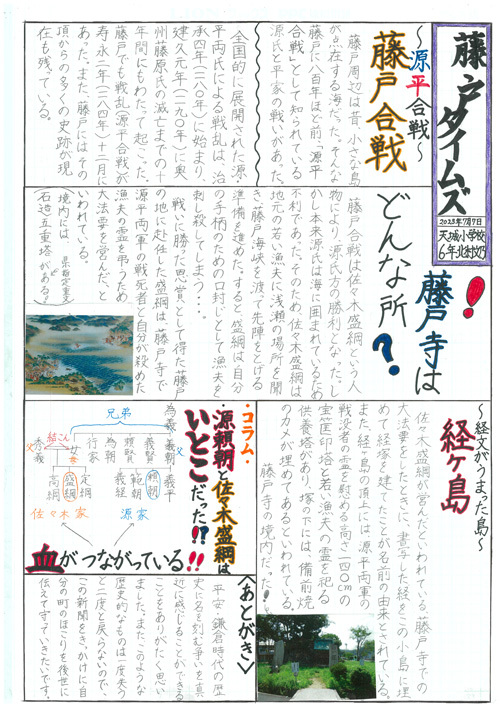 藤戸タイムズ
2023年7月7日
天城小学校
〜源平合戦〜
藤戸合戦
藤戸周辺は昔、小さな島
が点在する海だった。そんな
藤戸に八百年ほど前、「源平
合戦」として知られている
源氏と平家の戦いがあった。
全国的に展開された源、
平両氏による戦乱は、治
承四年(一一八〇年)に始まり、
建久元年(一一九〇年)に奥
州藤原氏の滅亡までの十
年間にもわたって起こった。
藤戸でも戦乱(源平合戦)が
寿永二年(一一八四年)十二月に
あった。また、藤戸にはその
頃からの多くの史跡が現
在も残っている。
藤戸寺は
どんな所?
藤戸合戦は佐々木盛綱という人
物により、源氏方の勝利となった。し
かし本来源氏は海に囲まれているため
不利であった。そのため、佐々木盛綱は
地元の若い漁夫に浅瀬の場所を聞
き、藤戸海峡を渡って先陣をとげる
準備を進めた。すると、盛綱は自分
の手柄のための口封じとして漁夫を
刺し殺してしまう・・・
戦いに勝った恩賞として得た藤戸
の地に赴任した盛綱は、藤戸寺で
源平両軍の戦死者と自分が殺めた
漁夫の霊を弔うため
大法要を営んだ、と
いわれている。
境内には
石造五重塔がある。
県指定重文
〜経文がうまった島〜
経ヶ島
佐々木盛綱が営んだといわれている、藤戸寺での
大法要をしたときに、書写した経をこの小島に埋
めて経塚を建てたことが名前の由来とされている。
また、経ヶ島の頂上には源平両軍の
戦没者の霊を慰める高さ一四〇cmの
宝篋印塔と若い漁夫の霊を祀る
供養塔があり、塚の下には、備前焼
のカメが埋めてあるといわれている。
藤戸寺の境内だった!
・コラム・
源頼朝と佐々木盛綱は
いとこだった!?
為義
義朝
義賢
頼賢
為朝
行家
女
秀義
結こん
兄弟
父
義平
頼朝
範朝
義経
定綱
盛綱
高綱
佐々木家
源家
血がつながっている!!
<あとがき>
平安・鎌倉時代の歴
史に名を刻む争いを真
近に感じることができる
ことをありがたく思い
ました。また、このような
歴史的なものは一度失う
と二度と戻らないので、
この新聞をきっかけに自
分の町のほこりを後世に
伝えて守っていきたいです。